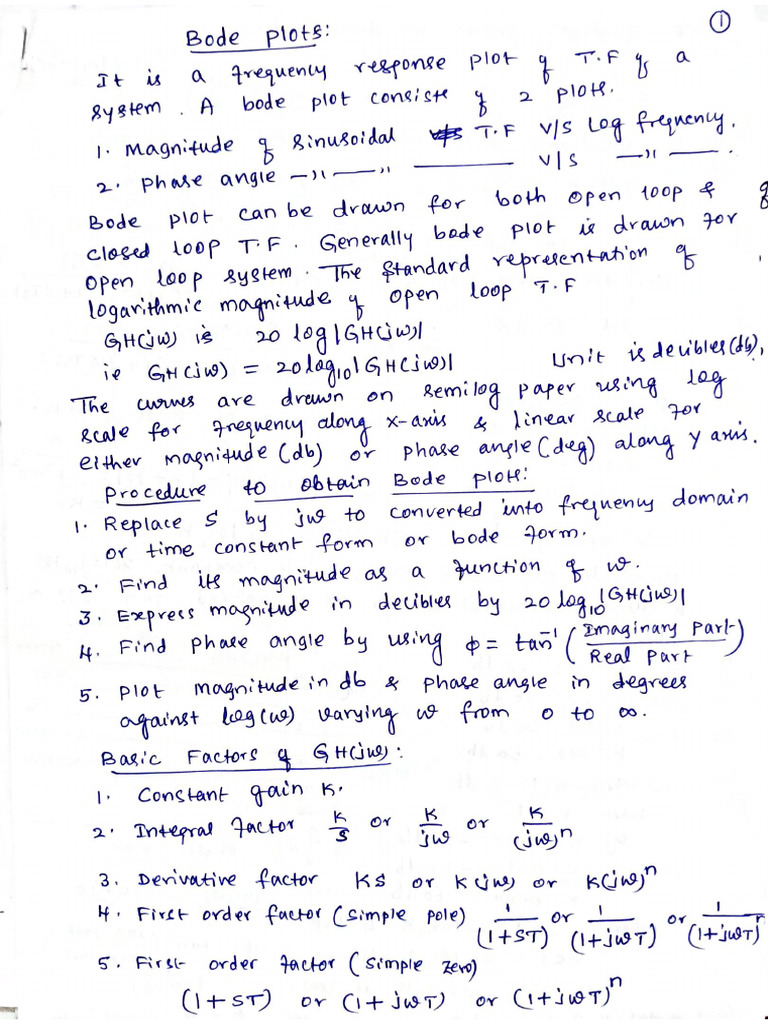 ①
Bode plots:
It is a frequency response plot of T.F of a
system. A bode plot consists of 2 plots.
1. Magnitude of sinusoidal T.F V/S Log frequency.
2. Phase angle —〃—〃 ——— V/S —〃—.
Bode plot can be drawn for both open loop &
closed loop T.F. Generally bode plot is drawn for
open loop system. The standard representation of
logarithmic magnitude of open loop T.F
GH(jω) is 20 log|GH(jω)|
ie GH(jω) = 20log₁₀|GH(jω)| Unit is decibles(db),
The curves are drawn on semilog paper using log
scale for frequency along x-axis & linear scale for
either magnitude (db) or phase angle (deg) along Y axis.
Procedure to obtain Bode plots:
1. Replace S by jω to converted into frequency domain
or time constant form or bode form.
2. Find its magnitude as a function of ω.
3. Express magnitude in decibles by 20 log₁₀|GH(jω)|
4. Find phase angle by using φ = tan⁻¹ (Imaginary Part / Real Part)
5. Plot magnitude in db & phase angle in degrees
against log(ω) varying ω from 0 to ∞.
Basic Factors of GH(jω):
1. Constant gain K.
2. Integral factor K/S or K/jω or K/(jω)ⁿ
3. Derivative factor KS or K(jω) or K(jω)ⁿ
4. First order factor (simple pole) 1/(1+ST) or 1/(1+jωT) or 1/(1+jωT)ⁿ
5. First order factor (simple zero)
(1+ST) or (1+jωT) or (1+jωT)ⁿ